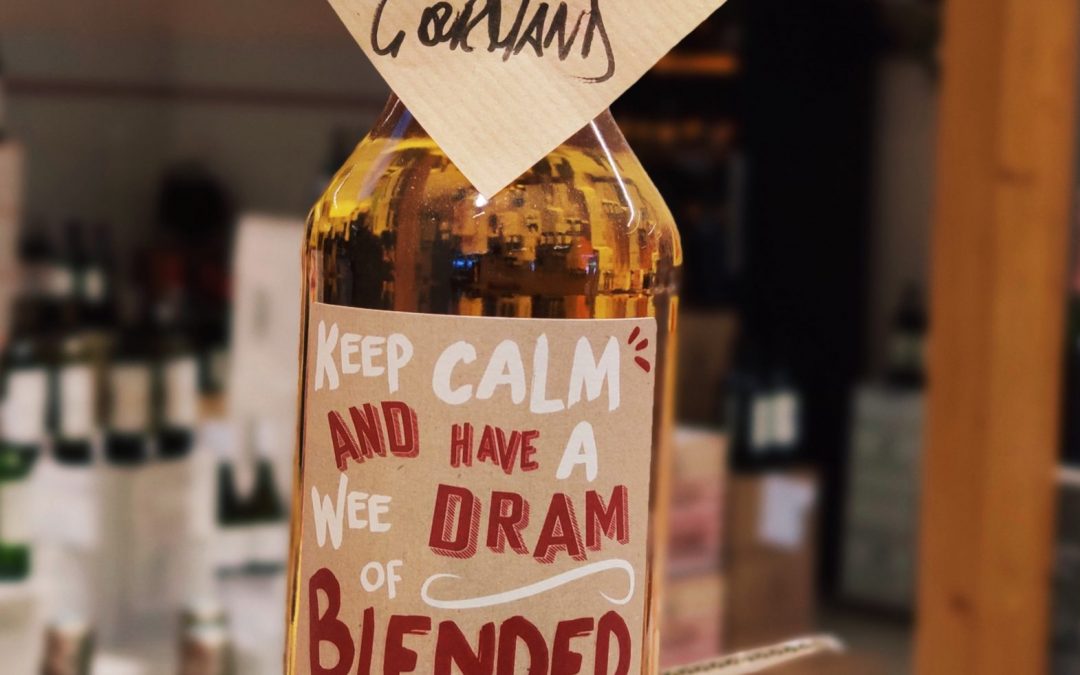 GOURMAND
KEEP CALM
AND HAVE A
WEE DRAM
OF
BLENDED